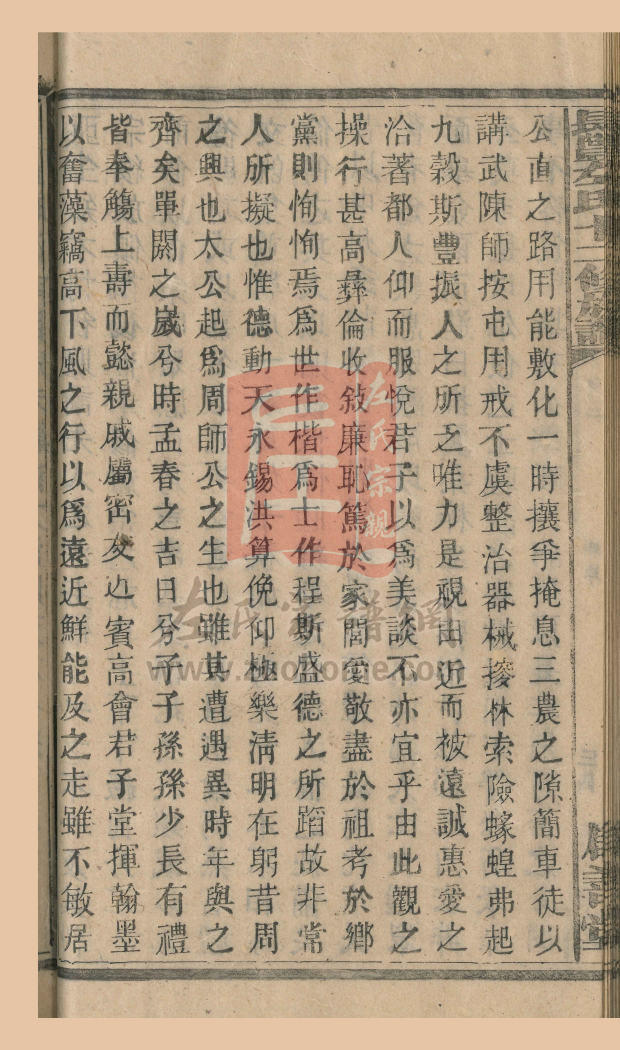 公直之路用能敷化一時攘爭掩息三農之隙簡車徒以
講武陳師按屯用戒不虞整治器械搜林索險蠔蝗弗起
九穀斯豐振人之所乏唯力是視由近而被遠誠惠愛之
洽著都人仰而服悅君子以為美談不亦宜乎由此觀之
操行甚高彝倫收敍廉恥篤於家閭愛敬盡於祖考於鄉
黨則恂恂焉爲世作楷爲士作程斯盛德之所蹈故非常
人所擬也惟德動天永錫洪算俛仰極樂淸明在躬昔周
之興也太公起爲周師公之生也雖其遭遇異時年與之
齊矣單閼之歲兮時孟春之吉日兮子子孫孫少長有禮
皆奉觴上壽而懿親戚屬密友边賓高會君子堂揮翰墨
以奮藻竊高下風之行以爲遠近鮮能及之走雖不敏居
左氏宗親
左氏家譜網